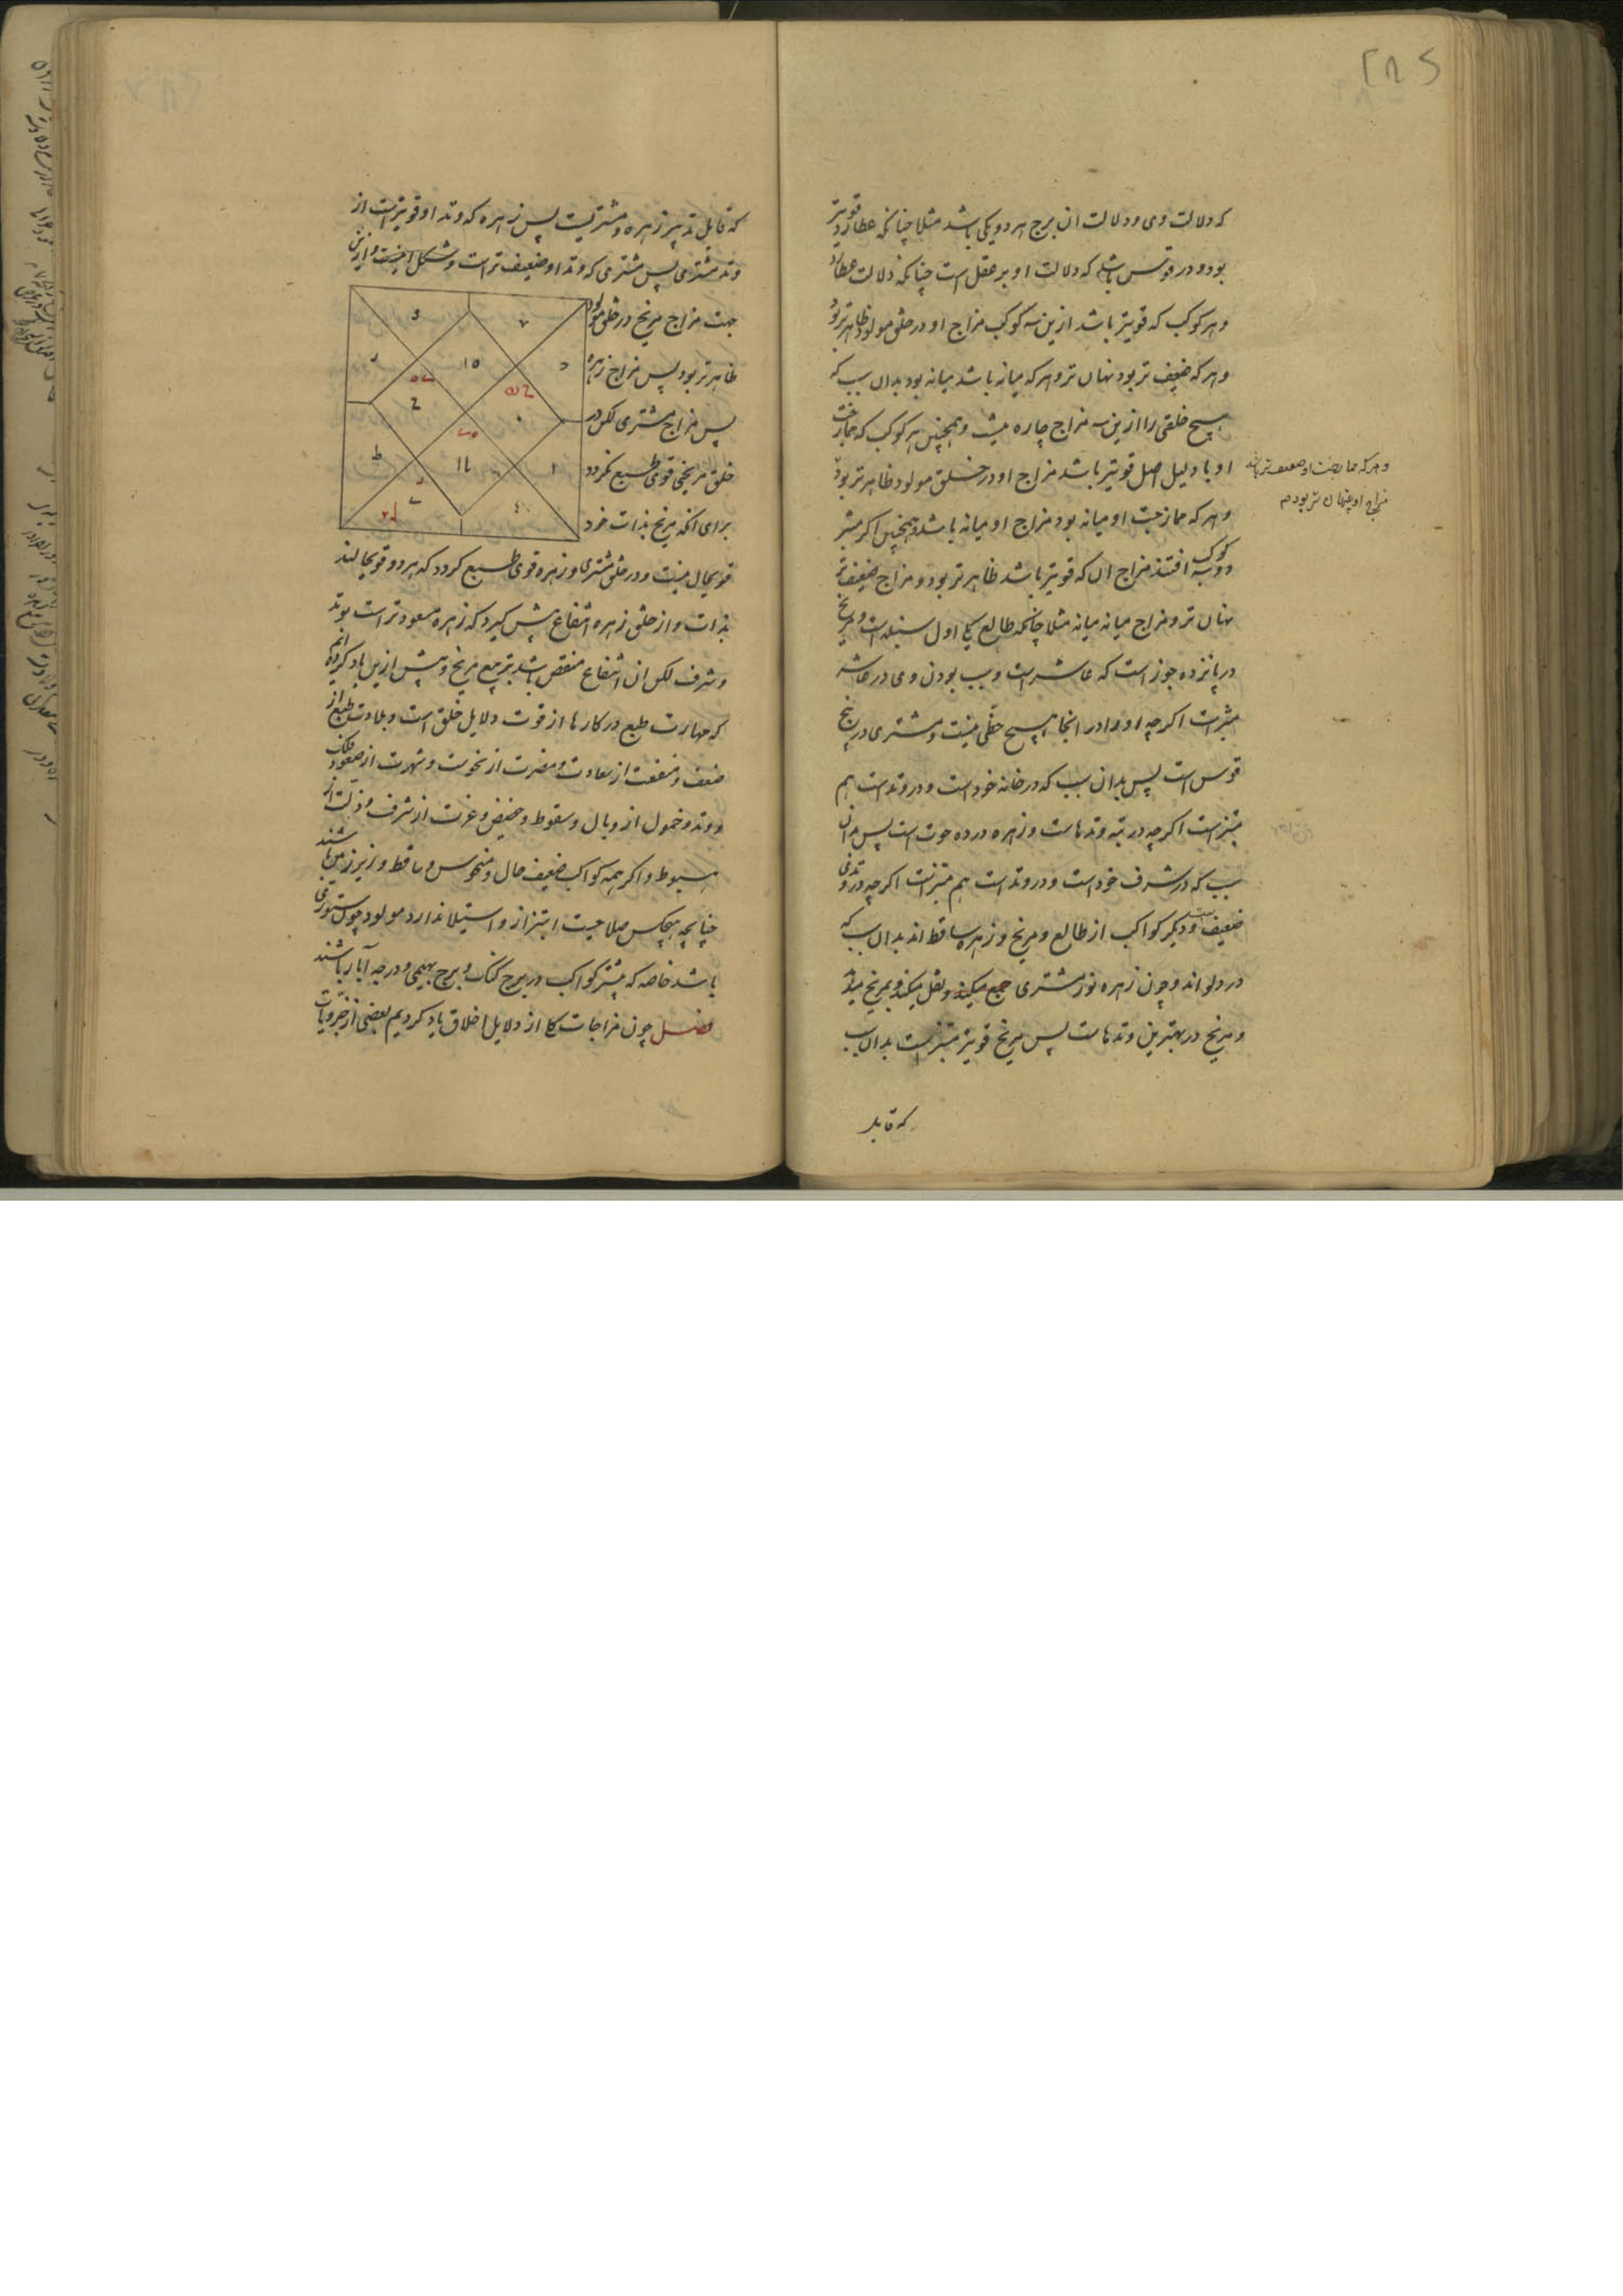 که دلالت وی و دلالت ان برج هر دو یکی باشد مثلا چنانکه عطارد قویتر
بود و در قوس باشد که دلالت او بر عقل است چنانکه دلالت عطارد
و هر کوکب که قویتر باشد ازین سه کوکب مزاج او در خلق مولود ظاهرتر بود
و هر که ضعیف تر بود نهان تر و هر که میانه باشد میانه بود بدان سبب که
هیچ خلقی را ازین سه مزاج چاره نیست و همچنین هر کوکب که ممازجت
او با دلیل اصل قویتر باشد مزاج او در خلق مولود ظاهرتر بود
و هر که ممازجت او ضعیف تر باشد
مزاج او پنهان تر بود
و هر که ممازجت او میانه بود مزاج او میانه باشد و همچنین اکر مبتز
دو سه کوکب افتند مزاج ان که قویتر باشد ظاهرتر بود و مزاج ضعیف تر
نهان تر و مزاج میانه میانه مثلا چنانکه طالع یکی اول سنبله است و مریخ
در پانزده جوزاست که عاشر است و بسبب بودن وی در عاشر
مبتز است اکرچه او را در انجا هیچ حظی نیست و مشتری در پنج
قوس است پس بدان سبب که در خانه خود است و در وتد است هم
مبتز است اکرچه در تبه وتدهاست و زهره در ده حوت است پس بدان
سبب که در شرف خود است و در وتد است هم مبتز است اکرچه در وتدی
ضعیف است و دیکر کواکب از طالع و مریخ و زهره ساقط اند بدان سبب که
در دلو اند و چون زهره نور مشتری جمع میکند و نقل میکند و بمریخ میدهد
و مریخ در بهترین وتدهاست پس مریخ قویتر مبتز است بدان سبب
که قابل
که قابل تدبیر زهره و مشتریست پس زهره که وتد او قویتر است از
وتد مشتری پس مشتری که وتد او ضعیف تر است و شکل اینست و ازین
جهت مزاج مریخ در خلق مولود
ظاهرتر بود پس مزاج زهره
پس مزاج مشتری لکن در
خلق مریخی قوی طبع نکردد
برای انکه مریخ بذات خود
قوی حال نیست و در خلق مشتری و زهره قوی طبع کردد که هر دو قوی حالند
بذات و از خلق زهره انتفاع بیش کیرد که زهره مسعودتر است بوتد
و شرف لکن ان انتفاع منغص باشد بتربیع مریخ و پیش ازین یاد کرده ایم
که مهارت طبع در کارها از قوت دلایل خلق است و بلادت طبع از
ضعف و منفعت از سعادت و مضرت از نحوست و شهرت از صعود فلک
و وتد و خمول از وبال و سقوط و حضیض و عزت از شرف و ذلت از
هبوط و اکر همه کواکب ضعیف حال و منحوس و ساقط و زیر زمین باشند
چنانچه هیچکس صلاحیت ابتزاز و استیلا ندارد مولود چون ستوری
باشد خاصه که بیشتر کواکب در برج کنک و برج بهیمی و درجه آبار باشند
فصل چون مزاجات کلی از دلایل اخلاق یاد کردیم بعضی از جزویات